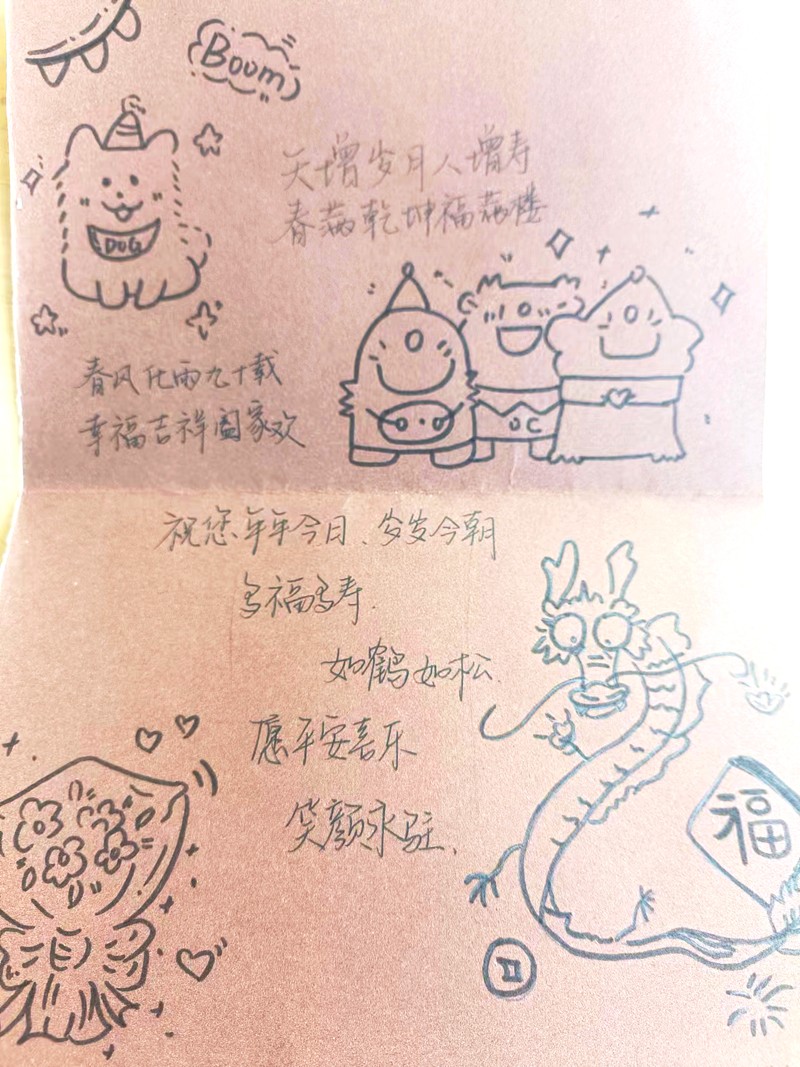 Boom
天增岁月人增寿
春满乾坤福满楼
DOG
春风化雨九十载
幸福吉祥阖家欢
祝您年年今日、岁岁今朝
多福多寿.
如鹤如松.
愿平安喜乐
笑颜永驻.
福